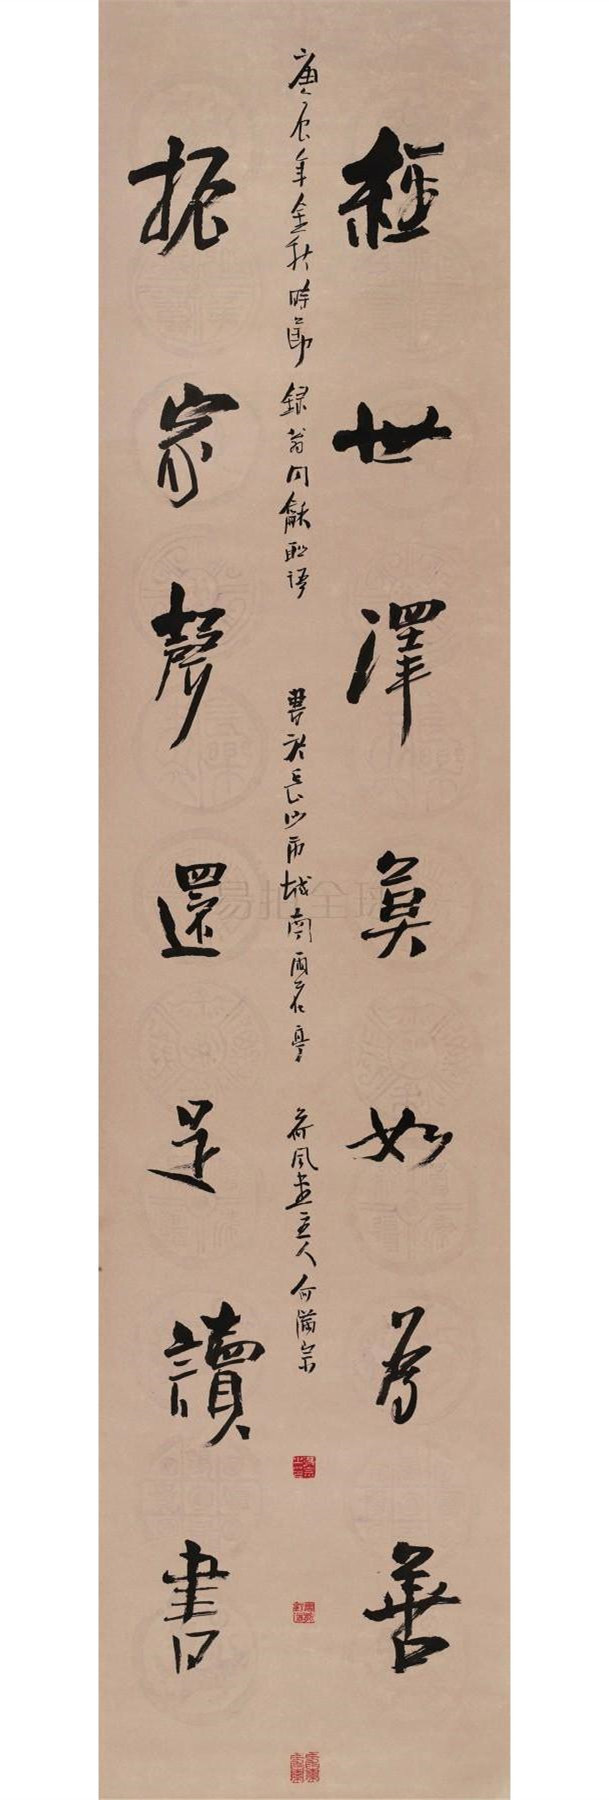 經世澤莫如為善
振家聲還是讀書
庚辰年金秋時節 錄翁同龢聯語
書於長沙市城南雨花亭
荷風畫主人何滿宗
易拍全球